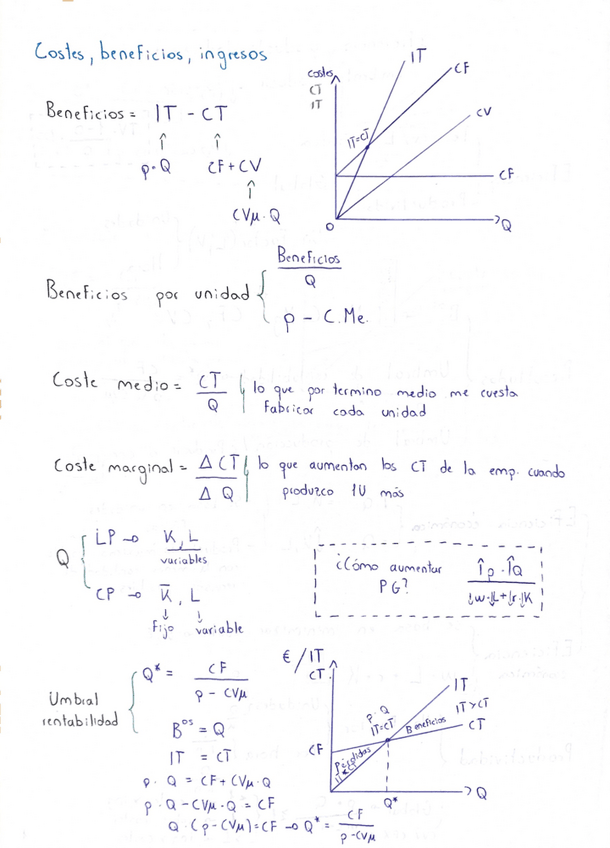 Costes, beneficios, ingresos
Beneficios = IT - CT
↑ ↑
p·Q CF+CV
↑
CVμ·Q
costes
CT
IT
IT
CF
CV
IT=CT
CF
O
Q
Beneficios por unidad {
Beneficios
Q
p - C.Me.
Coste medio = CT / Q lo que por termino medio me cuesta
Fabricar cada unidad
Coste marginal = Δ CT / Δ Q lo que aumentan los CT de la emp. cuando
produzco 1U más
Q {
LP → K, L
variables
CP → K̄, L
↓ ↓
Fijo variable
¿Cómo aumentar
PG?
↑p · ↑Q
↓w·↓L+↓r·↓K
Umbral
rentabilidad {
Q* = CF / p - CVμ
Bºˢ = Q
IT = CT
p · Q = CF + CVμ·Q
p · Q - CVμ·Q = CF
Q·(p-CVμ)=CF → Q* = CF / p-CVμ
€/IT
CT
IT
IT>CT
CT
p·Q
IT=CT
Beneficios
CF
Pérdidas
IT<CT
Q*
Q